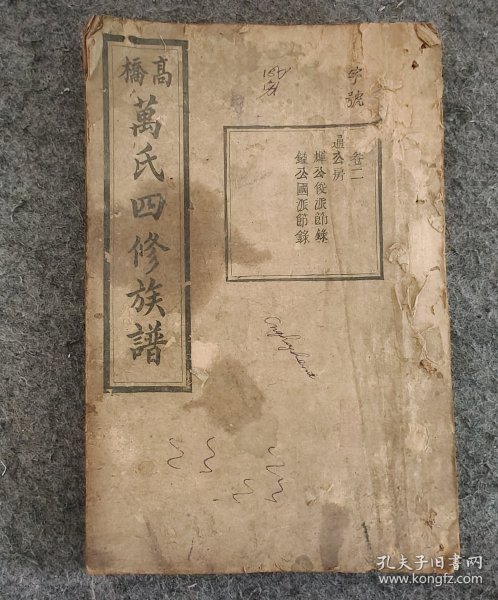 高橋
萬氏四修族譜
字號
卷二
通公房
煇公俊派節錄
鎰公國派節錄
孔夫子旧书网
www.kongfz.com